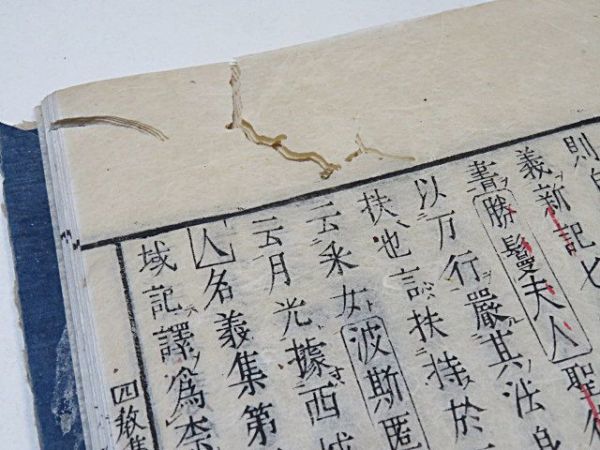 則自
義新記七
書勝鬘夫人聖
以万行嚴其法身
扶也言扶持於
云釆女波斯匿
云月光據西域
人名義集第
域記譯爲柰
四教集